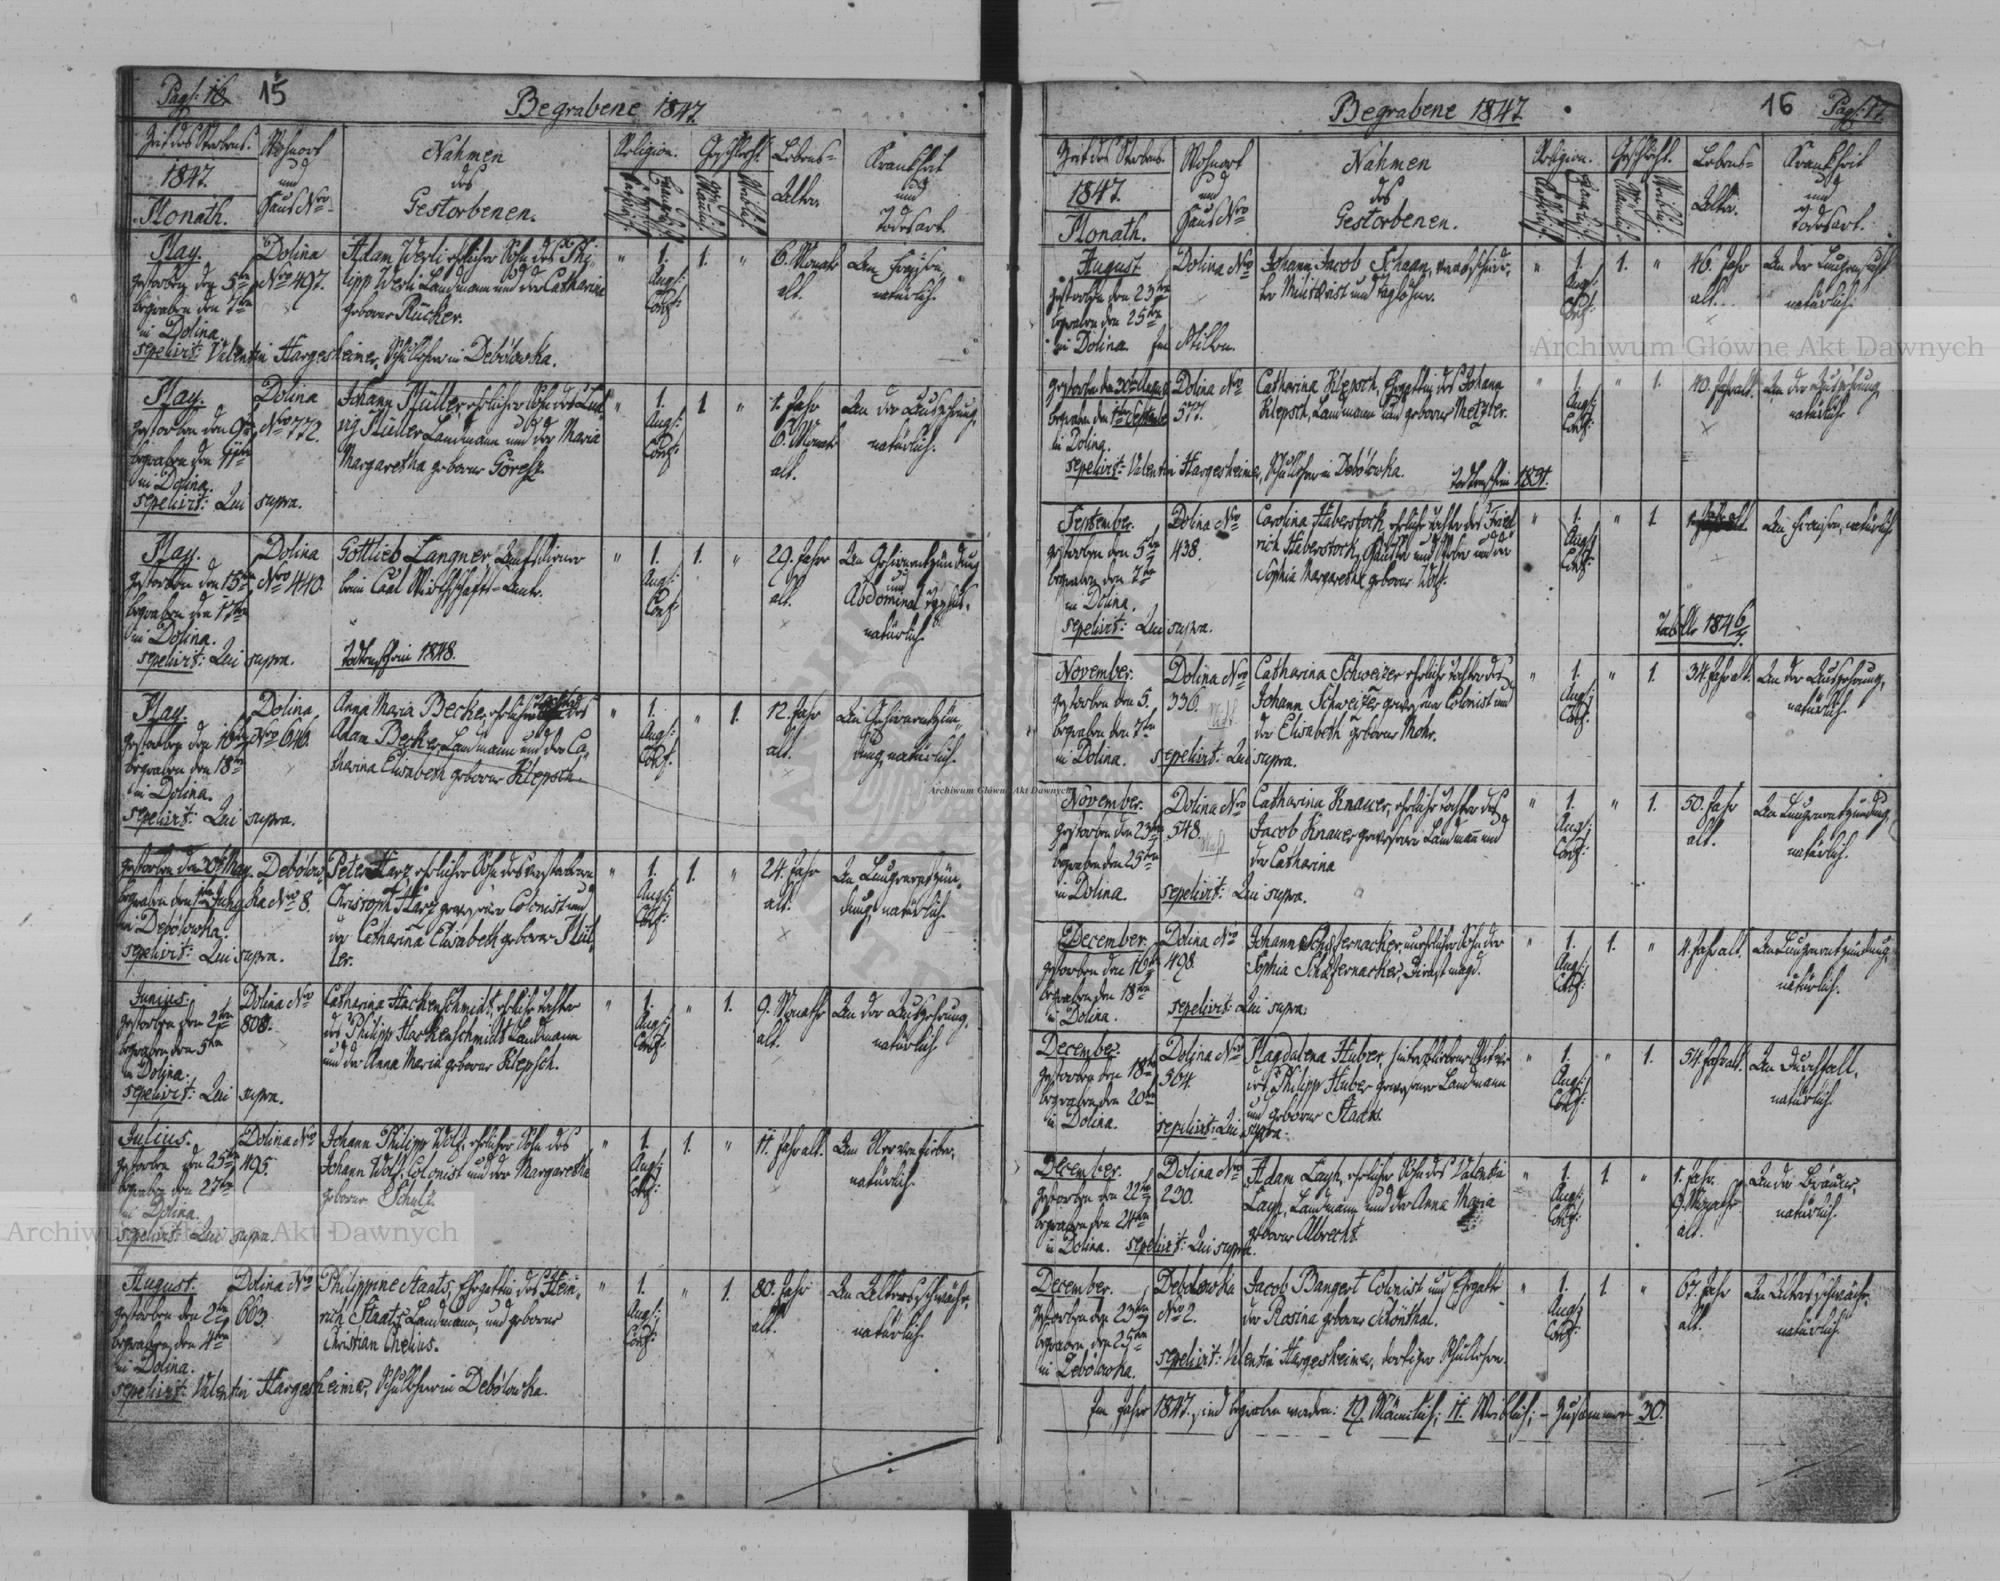 Pag: 16 15
Begrabene 1847.
Zeit des Sterbens.
1847.
Monath.
Wohnort
und
Haus Nro
Nahmen
des
Gestorbenen.
Religion.
Geschlecht.
Lebens-
Alter.
Krankheit
und
Todesart.
May.
gestorben den 5ten
begraben den 7ten
in Dolina.
Dolina
Nro 497.
Adam Werli ehelicher Sohn des Phi,
lipp Werli Landmann und der Catharina
geborne Rücker.
" 1. Augs: Conf: 1. "
6. Monate
alt.
natürlich.
sepelivit: Valentin Hargesheimer, Schullehrer in Debolowka.
May.
gestorben den 9ten
begraben den 11ten
in Dolina.
Dolina
Nro 772.
Johann Müller, ehelicher Sohn des Lud,
wig Müller Landmann und der Maria
Margaretha geborne Göres.
" 1. Augs: Conf: 1. "
1. Jahr
6. Monate
alt.
An der Auszehrung,
natürlich.
sepelivit: Qui supra.
May.
gestorben den 15ten
begraben den 17ten
in Dolina.
Dolina
Nro 440.
Gottlieb Langner,
beim Caal Wirthschafts-Amte.
" 1. Augs: Conf: 1. "
29. Jahr
alt.
An Gehirnentzündung
und
Abdominal Typhus.
natürlich.
sepelivit: Qui supra.
Todtenschein 1848.
May.
gestorben den 16ten
begraben den 18ten
in Dolina.
Dolina
Nro 646.
Anna Maria Becker, eheliche Tochter des
Adam Becker, Landmann und der Ca,
tharina Elisabeth geborne Klepsch.
" 1. Augs: Conf: " 1.
12. Jahr
alt.
An Gehirnentzün,
dung, natürlich.
sepelivit: Qui supra.
gestorben den 30ten May.
begraben den 1ten Juny
in Debolowka.
Debolow,
ka Nro 8.
Peter Harz, ehelicher Sohn des verstorbenen
Christoph Harz gewesener Colonist und
der Catharina Elisabeth geborne Mül,
ler.
" 1. Augs: Conf: 1. "
24. Jahr
alt.
An Lungenentzün,
dung, natürlich.
sepelivit: Qui supra.
Junius.
gestorben den 3ten
begraben den 5ten
in Dolina.
Dolina Nro
808.
Catharina Hackenschmidt, eheliche Tochter
des Philipp Hackenschmidt Landmann
und der Anna Maria geborne Klepsch.
" 1. Augs: Conf: " 1.
9. Monathe
alt.
An der Auszehrung,
natürlich.
sepelivit: Qui supra.
Julius.
gestorben den 25ten
begraben den 27ten
in Dolina.
Dolina Nro
495.
Johann Philipp Wolf, ehelicher Sohn des
Johann Wolf, Colonist und der Margaretha
geborne Schulz.
" 1. Augs: Conf: 1. "
11. Jahr alt.
Am Nervenfieber,
natürlich.
sepelivit: Qui supra.
August.
gestorben den 2ten
begraben den 4ten
in Dolina.
Dolina Nro
663.
Philippine Staats, Ehegattin des Hein,
rich Staats, Landmann, und geborne
Christian Chelius.
" 1. Augs: Conf: " 1.
80. Jahr
alt.
An Altersschwäche,
natürlich.
sepelivit: Valentin Hargesheimer, Schullehrer in Debolowka.
Begrabene 1847.
16 Pag: 17
Zeit des Sterbens.
1847.
Monath.
Wohnort
und
Haus Nro
Nahmen
des
Gestorbenen.
Religion.
Geschlecht.
Lebens-
Alter.
Krankheit
und
Todesart.
August
gestorben den 23ten
begraben den 25ten
in Dolina. Im Stillen.
Dolina Nro
Johann Jacob Schaan, verabschiede,
ter und Taglöhner.
" 1. Augs: Conf: 1. "
46. Jahr
alt.
An der Lungensucht
natürlich.
gestorben den 30ten August
begraben den 1ten September
in Dolina.
Dolina Nro
577.
Catharina Klepsch, Ehegattin des Johann
Klepsch, Landmann und geborne Metzler.
" 1. Augs: Conf: " 1.
40. Jahr alt.
An der Auszehrung
natürlich
sepelivit: Valentin Hargesheimer, Schullehrer in Debolowka.
Todtenschein 1891.
September.
gestorben den 5ten
begraben den 7ten
in Dolina.
Dolina Nro
438.
Carolina Haberstock, eheliche Tochter des Fried
rich Haberstock, und der
Sophia Margaretha geborne Wolf.
" 1. Augs: Conf: " 1.
An Fraisen, natürlich
sepelivit: Qui supra.
1846
November.
gestorben den 5.
begraben den 7ten
in Dolina.
Dolina Nro
336.
Catharina Schweizer eheliche Tochter des
Johann Schweizer gewesener Colonist und
der Elisabeth geborne Mohr.
" 1. Augs: Conf: " 1.
34. Jahr alt.
An der Auszehrung,
natürlich.
sepelivit: Qui supra.
November.
gestorben den 23ten
begraben den 25ten
in Dolina.
Dolina Nro
548.
Catharina Knauer, eheliche Tochter des
Jacob Knauer gewesener Landmann und
der Catharina
" 1. Augs: Conf: " 1.
50. Jahr
alt.
An Lungenentzündung,
natürlich.
sepelivit: Qui supra.
December.
gestorben den 16ten
begraben den 18ten
in Dolina.
Dolina Nro
498.
Johann Schäfernacker, unehelicher Sohn der
Sophia Schäfernacker, Dienstmagd.
" 1. Augs: Conf: 1. "
4. Jahr alt.
An Lungenentzündung,
natürlich.
sepelivit: Qui supra.
December.
gestorben den 18ten
begraben den 20ten
in Dolina.
Dolina Nro
564.
Magdalena Huber, hinterbliebene Witwe
des Philipp Huber gewesener Landmann
und geborne Staats.
" 1. Augs: Conf: " 1.
54. Jahr alt.
An Durchfall,
natürlich.
sepelivit: Qui supra.
December.
gestorben den 22ten
begraben den 24ten
in Dolina.
Dolina Nro
230.
Adam Lays, ehelicher Sohn des Valentin
Lays, Landmann und der Anna Maria
geborne Albrecht.
" 1. Augs: Conf: 1. "
1. Jahr.
9. Monathe
alt.
An der Bräune,
natürlich.
sepelivit: Qui supra.
December.
gestorben den 23ten
begraben den 25ten
in Debolowka.
Debolowka
Nro 2.
Jacob Bangert Colonist und Ehegatte
der Rosina geborne Schönthal.
" 1. Augs: Conf: 1. "
67. Jahr
alt.
An Altersschwäche,
natürlich.
sepelivit: Valentin Hargesheimer, dortiger Schullehrer.
Im Jahr 1847. sind begraben worden: 19. Männlich; 11. Weiblich; - Zusammen 30.
Archiwum Główne Akt Dawnych
Archiwum Główne Akt Dawnych
Archiwum Główne Akt Dawnych